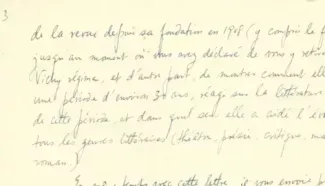 3
de la revue depuis sa fondation en 1908 (y compris le
jusqu'au moment où vous avez déclaré de vous y retir
Vichy régime, et d'autre part, de montrer comment ell
une période d'environ 30 ans, réagi sur la littérature
de cette période, et dans quel sens elle a aidé l'év
tous les genres littéraires (théâtre, poésie, critique,
roman.)
temps avec cette lettre, je vous envoie